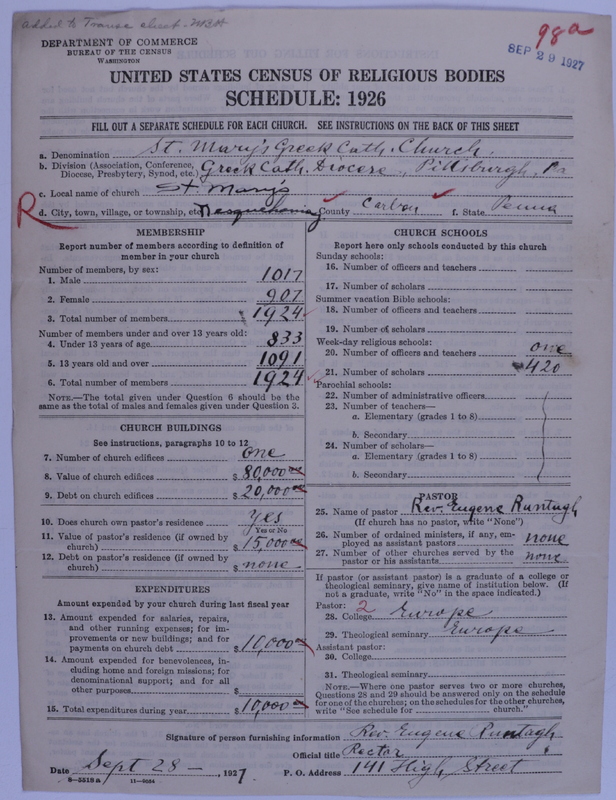 added to Transc sheet - WBH
98a
SEP 29 1927
DEPARTMENT OF COMMERCE
BUREAU OF THE CENSUS
WASHINGTON
UNITED STATES CENSUS OF RELIGIOUS BODIES
SCHEDULE: 1926
FILL OUT A SEPARATE SCHEDULE FOR EACH CHURCH. SEE INSTRUCTIONS ON THE BACK OF THIS SHEET
a. Denomination St. Mary's Greek Cath. Church.
b. Division (Association, Conference, Diocese, Presbytery, Synod, etc.) Greek Cath. Diocese, Pittsburgh, Pa
c. Local name of church St Mary's
R
d. City, town, village, or township, etc Nesquehoning County Carbon f. State Penna
MEMBERSHIP
Report number of members according to definition of
member in your church
Number of members, by sex:
1. Male 1017
2. Female 907
3. Total number of members 1924
Number of members under and over 13 years old:
4. Under 13 years of age 833
5. 13 years old and over 1091
6. Total number of members 1924
NOTE.—The total given under Question 6 should be
same as the total of males and females given under Question 3.
CHURCH BUILDINGS
See instructions, paragraphs 10 to 12
7. Number of church edifices one
8. Value of church edifices $ 80,000 00
9. Debt on church edifices $ 20,000 00
10. Does church own pastor's residence yes
Yes or No
11. Value of pastor's residence (if owned by
church) $ 15,000 00
12. Debt on pastor's residence (if owned by
church) $ none
EXPENDITURES
Amount expended by your church during last fiscal year
13. Amount expended for salaries, repairs,
and other running expenses; for im-
provements or new buildings; and for
payments on church debt $ 10,000
14. Amount expended for benevolences, in-
cluding home and foreign missions; for
denominational support; and for all
other purposes $
15. Total expenditures during year $ 10,000 00
CHURCH SCHOOLS
Report here only schools conducted by this church
Sunday schools:
16. Number of officers and teachers
17. Number of scholars
Summer vacation Bible schools:
18. Number of officers and teachers
19. Number of scholars
Week-day religious schools:
20. Number of officers and teachers one
21. Number of scholars 420
Parochial schools:
22. Number of administrative officers
23. Number of teachers—
a. Elementary (grades 1 to 8)
b. Secondary
24. Number of scholars—
a. Elementary (grades 1 to 8)
b. Secondary
PASTOR
25. Name of pastor Rev. Eugene Runtagh
(If church has no pastor, write "None")
26. Number of ordained ministers, if any, em-
ployed as assistant pastors none
27. Number of other churches served by the
pastor or his assistants none
If pastor (or assistant pastor) is a graduate of a college or
theological seminary, give name of institution below. (If
not a graduate, write "No" in the space indicated.)
Pastor: 2
28. College Europe
29. Theological seminary Europe
Assistant pastor:
30. College
31. Theological seminary
NOTE.—Where one pastor serves two or more churches,
Questions 28 and 29 should be answered only on the schedule
for one of the churches; on the schedules for the other churches,
write "See schedule for church."
Signature of person furnishing information Rev. Eugene Runtagh
Official title Rector
Date Sept 28 -, 1927 P. O. Address 141 High Street
8—5518a 11—9554